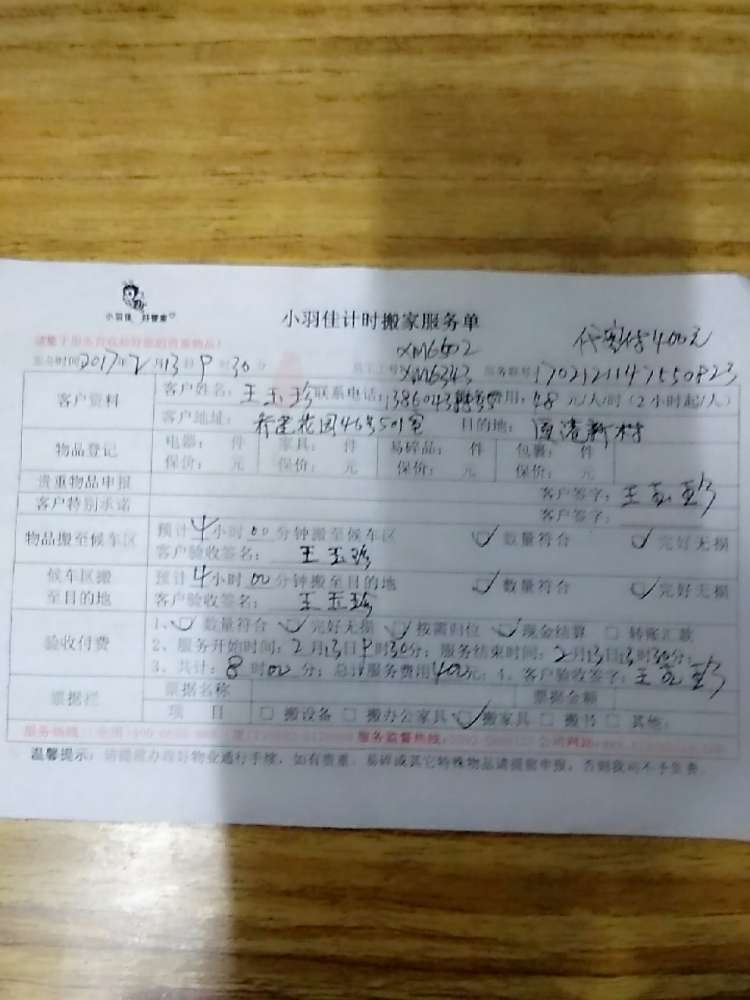 小羽佳 好管家
小羽佳计时搬家服务单
代客付400元
请集于服务前收拾好您的贵重物品!
XM6502
服务时间2017年2月13日9时30分 员工工号XM6343 服务单号:1702121147550823
客户资料 客户姓名:王玉珍 联系电话: 服务费用:48元/人时(2小时起/人)
客户地址: 花园46号501室 目的地: 新村
物品登记 电器: 件 家具: 件 易碎品: 件 包裹: 件
保价: 元 保价: 元 保价: 元 保价: 元
贵重物品申报 客户签字:王玉珍
客户特别承诺 客户签字:
物品搬至候车区 预计4小时00分钟搬至候车区 ✓数量符合 ✓完好无损
客户验收签名:王玉珍
候车区搬至目的地 预计4小时00分钟搬至目的地 ✓数量符合 ✓完好无损
客户验收签名:王玉珍
验收付费 1、✓数量符合 ✓完好无损 ✓按需归位 ✓现金结算 □转账汇款
2、服务开始时间:2月13日9时30分;服务结束时间:2月13日13时30分;
3、共计:8时00分;总计服务费用400元;4、客户验收签字:王玉珍
票据栏 票据名称 票据金额
项目 □搬设备 □搬办公家具 ✓搬家具 □搬书 □其他:
服务热线: 服务监督热线: 公司网址:
温馨提示:请提前办理好物业通行手续,如有贵重、易碎或其它特殊物品请提前申报,否则我司不予负责